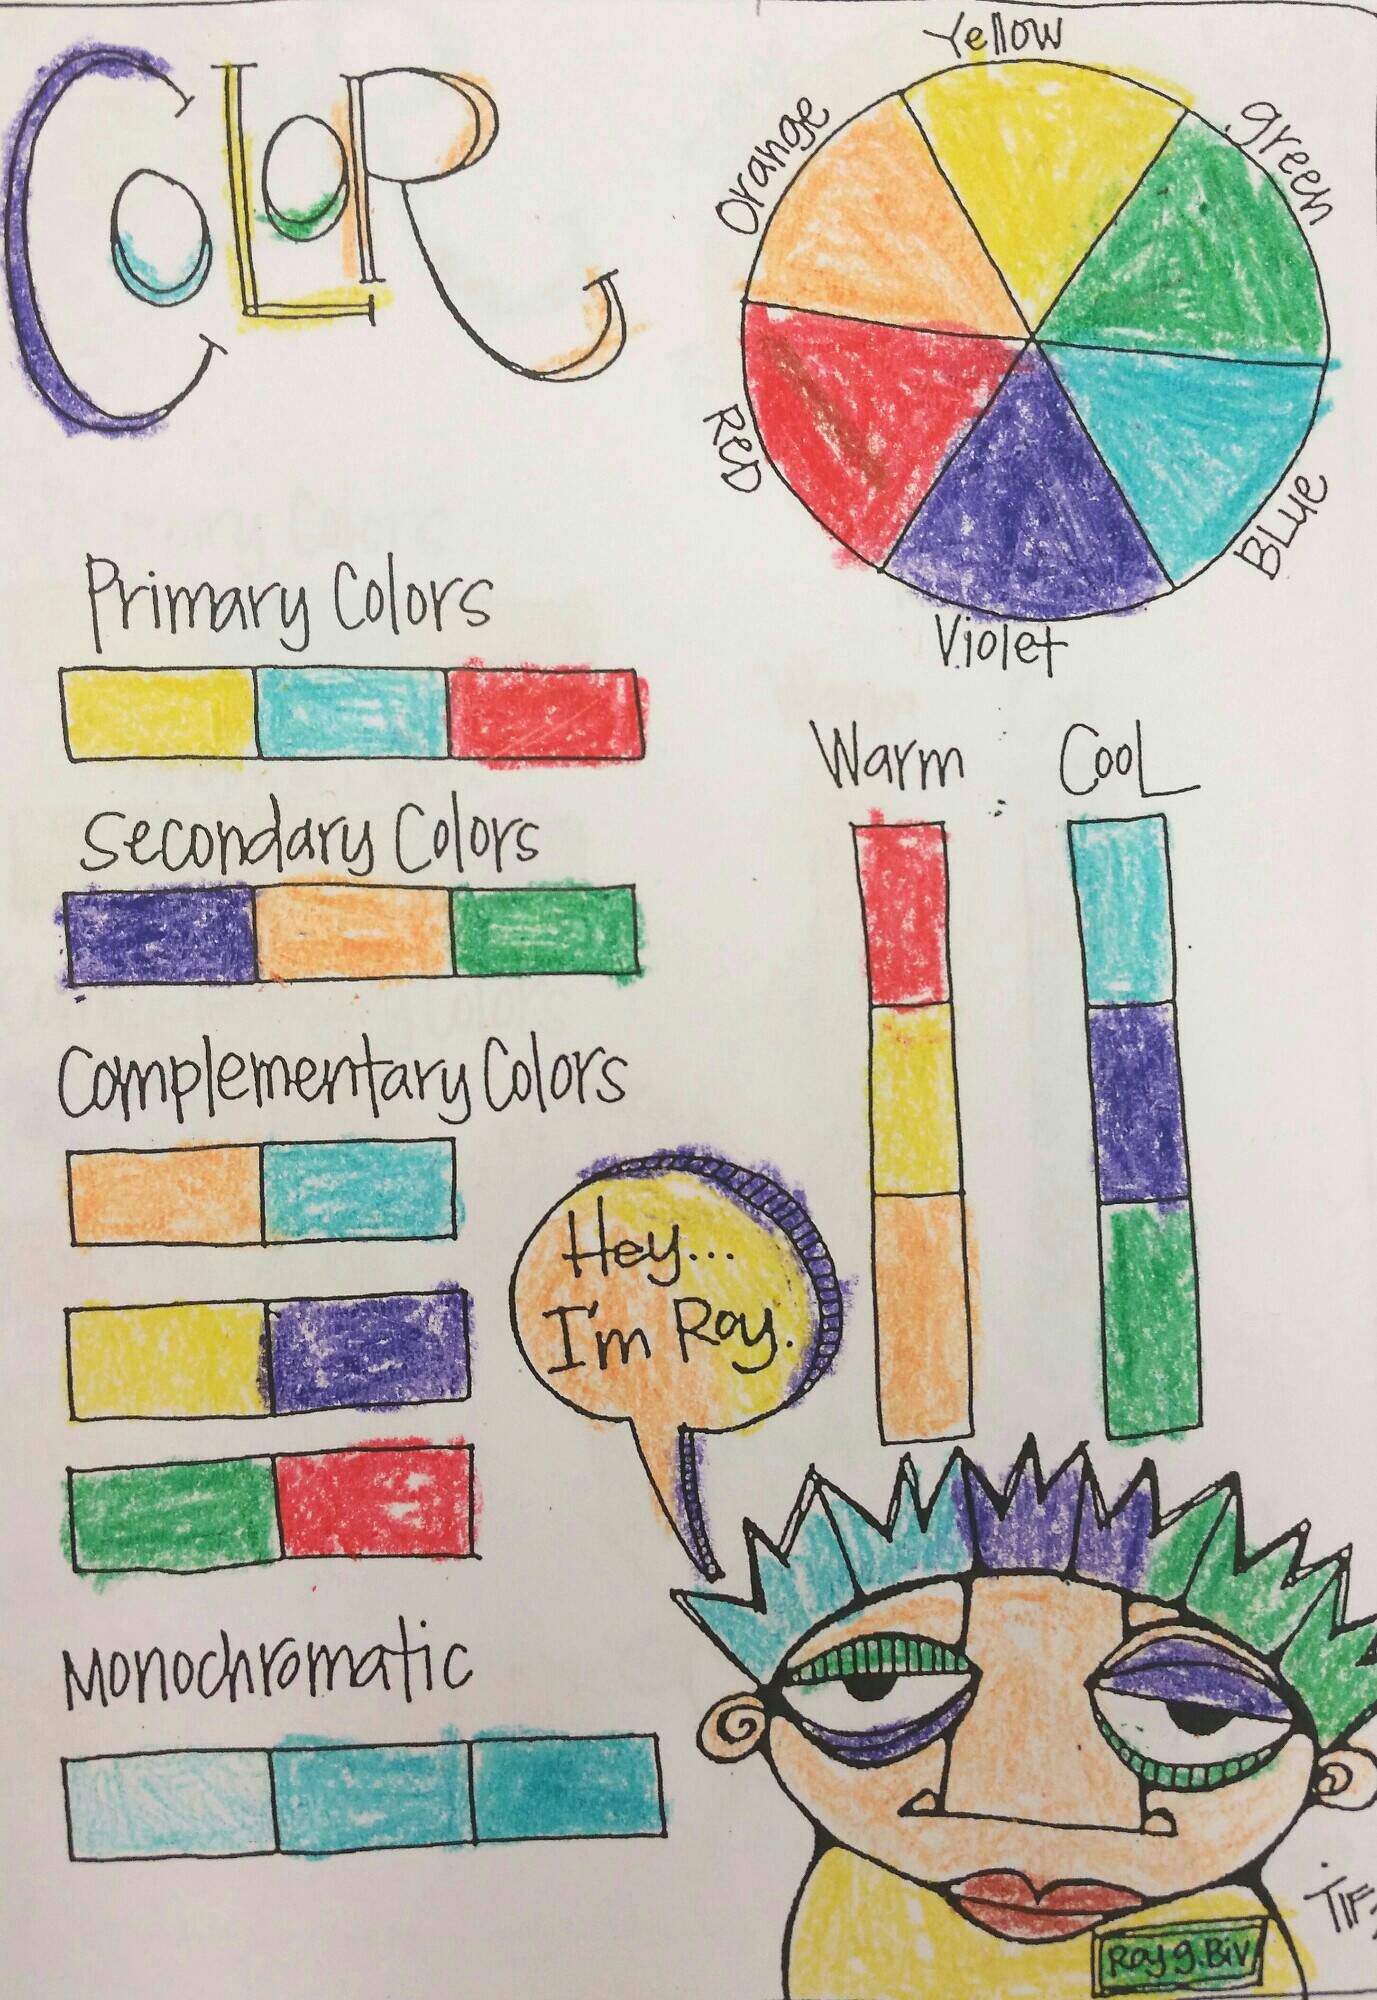 COLOR
Yellow
Orange
green
RED
BLue
Violet
Primary Colors
Secondary Colors
Complementary Colors
Monochromatic
Warm
CooL
Hey...
I'm Roy.
Roy g.Biv